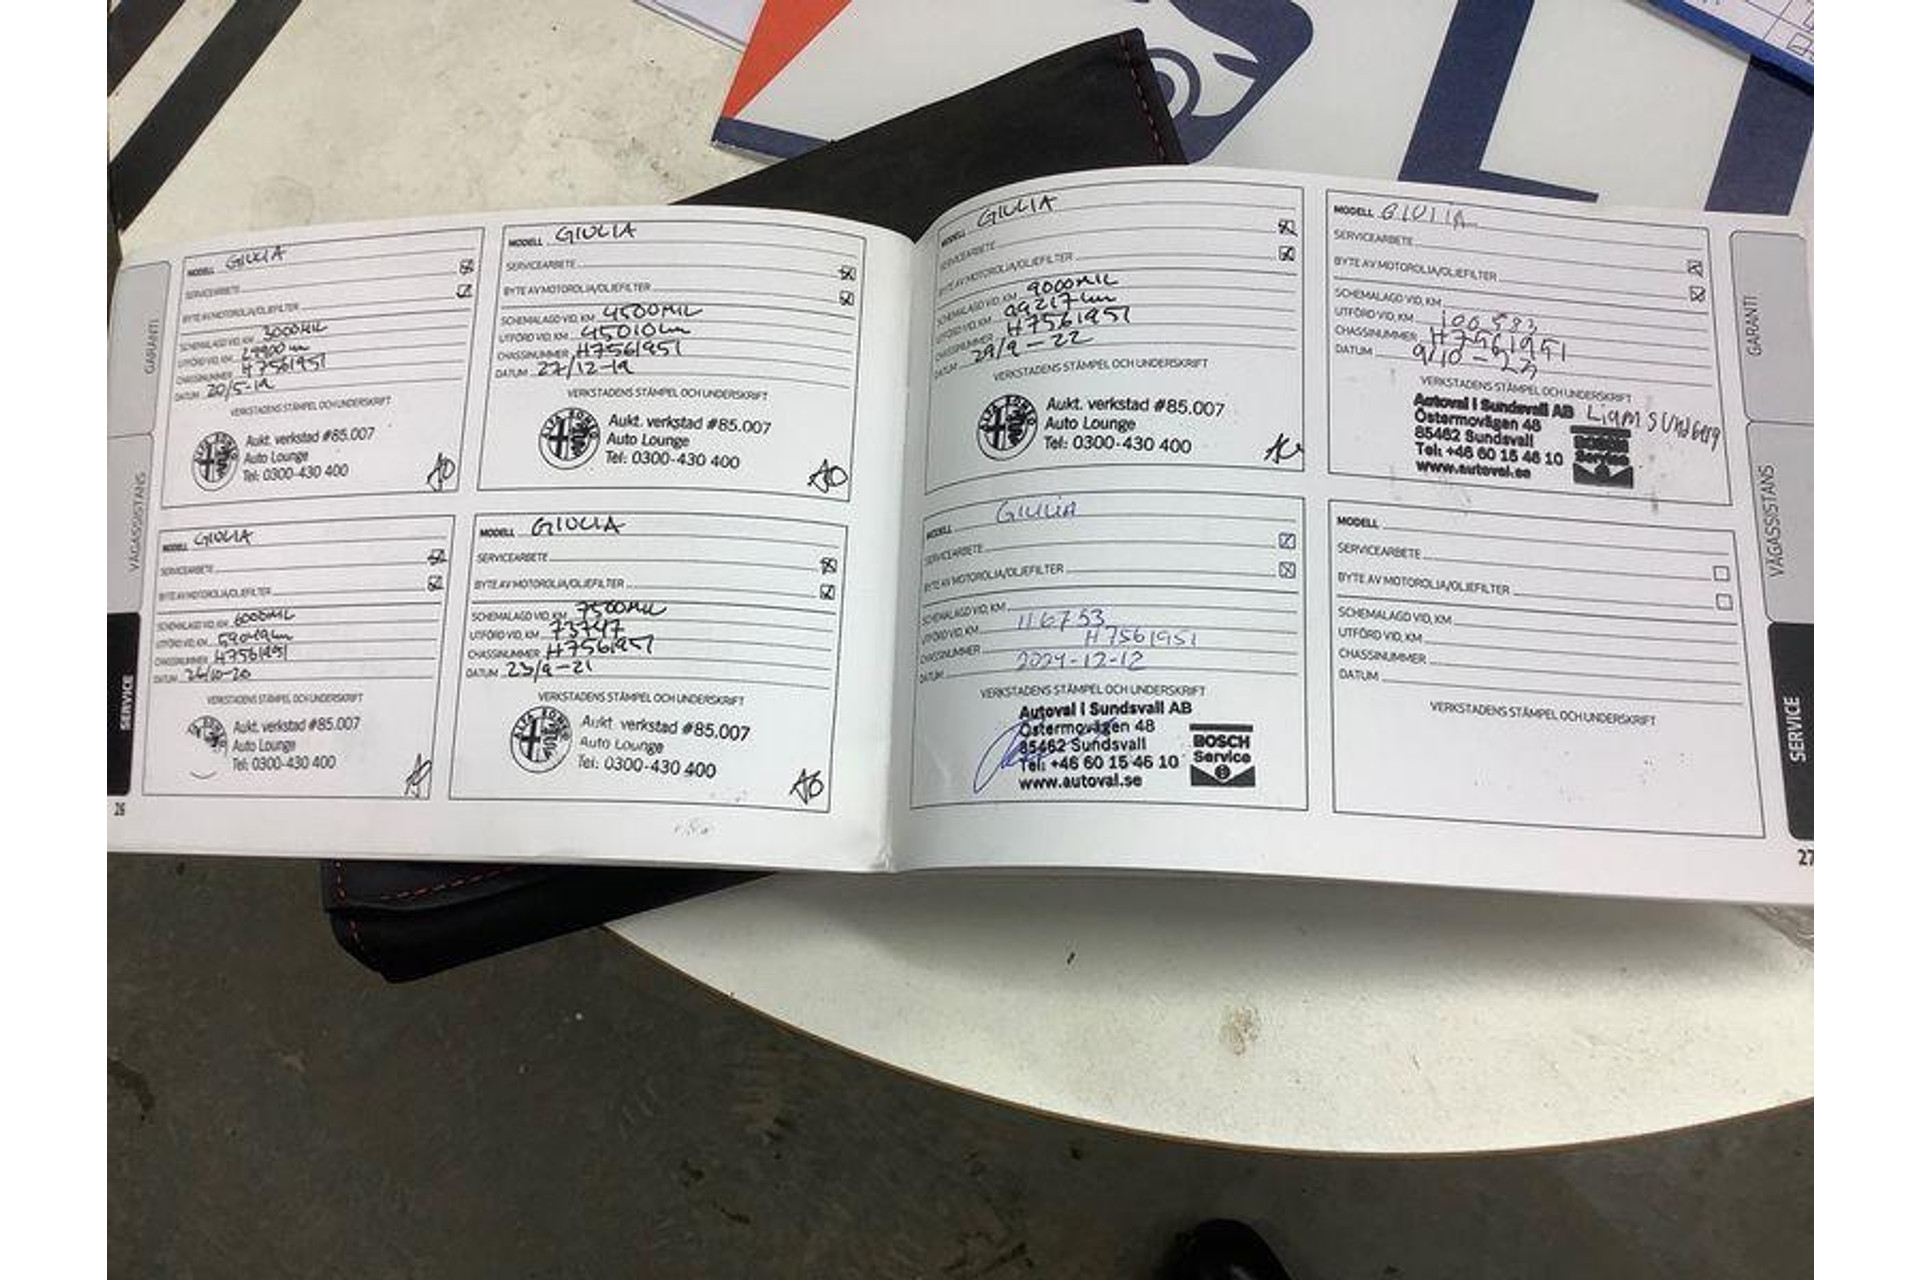 GARANTI
VÄGASSISTANS
SERVICE
26
MODELL GIULIA
SERVICEARBETE
BYTE AV MOTOROLJA/OLJEFILTER
SCHEMALAGD VID, KM 3000MIL
UTFÖRD VID, KM 29900 km
CHASSINUMMER H7561951
DATUM 20/5-19
VERKSTADENS STÄMPEL OCH UNDERSKRIFT
Aukt. verkstad #85.007
Auto Lounge
Tel: 0300-430 400
MODELL GIULIA
SERVICEARBETE
BYTE AV MOTOROLJA/OLJEFILTER
SCHEMALAGD VID, KM 4500MIL
UTFÖRD VID, KM 45010km
CHASSINUMMER H7561951
DATUM 27/12-19
VERKSTADENS STÄMPEL OCH UNDERSKRIFT
ALFA ROMEO
Aukt. verkstad #85.007
Auto Lounge
Tel: 0300-430 400
MODELL GIULIA
SERVICEARBETE
BYTE AV MOTOROLJA/OLJEFILTER
SCHEMALAGD VID, KM 6000MIL
UTFÖRD VID, KM 59049km
CHASSINUMMER H7561951
DATUM 26/10-20
VERKSTADENS STÄMPEL OCH UNDERSKRIFT
Aukt. verkstad #85.007
Auto Lounge
Tel: 0300-430 400
MODELL GIULIA
SERVICEARBETE
BYTE AV MOTOROLJA/OLJEFILTER
SCHEMALAGD VID, KM 7500MIL
UTFÖRD VID, KM 73747
CHASSINUMMER H7561951
DATUM 23/9-21
VERKSTADENS STÄMPEL OCH UNDERSKRIFT
ALFA ROMEO
Aukt. verkstad #85.007
Auto Lounge
Tel: 0300-430 400
MODELL GIULIA
SERVICEARBETE
BYTE AV MOTOROLJA/OLJEFILTER
SCHEMALAGD VID, KM 9000MIL
UTFÖRD VID, KM 99217km
CHASSINUMMER H7561951
DATUM 29/9-22
VERKSTADENS STÄMPEL OCH UNDERSKRIFT
ALFA ROMEO
Aukt. verkstad #85.007
Auto Lounge
Tel: 0300-430 400
MODELL GIULIA
SERVICEARBETE
BYTE AV MOTOROLJA/OLJEFILTER
SCHEMALAGD VID, KM
UTFÖRD VID, KM 106583
CHASSINUMMER H7561951
DATUM 9/10-23
VERKSTADENS STÄMPEL OCH UNDERSKRIFT
Autoval i Sundsvall AB Liam Sundberg
Östermovägen 48
85462 Sundsvall
Tel: +46 60 15 46 10
www.autoval.se
BOSCH
Service
MODELL GIULIA
SERVICEARBETE
BYTE AV MOTOROLJA/OLJEFILTER
SCHEMALAGD VID, KM
UTFÖRD VID, KM 116753
CHASSINUMMER H7561951
DATUM 2024-12-12
VERKSTADENS STÄMPEL OCH UNDERSKRIFT
Autoval i Sundsvall AB
Östermovägen 48
85462 Sundsvall
Tel: +46 60 15 46 10
www.autoval.se
BOSCH
Service
MODELL
SERVICEARBETE
BYTE AV MOTOROLJA/OLJEFILTER
SCHEMALAGD VID, KM
UTFÖRD VID, KM
CHASSINUMMER
DATUM
VERKSTADENS STÄMPEL OCH UNDERSKRIFT
GARANTI
VÄGASSISTANS
SERVICE
27